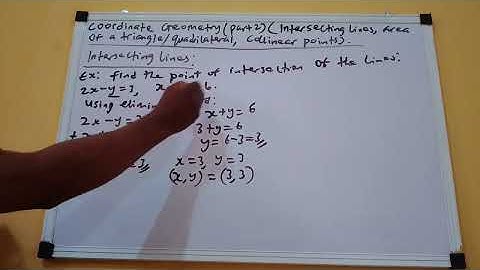 Coordinate Geometry (part 2) (Intersecting Lines, Area
of a triangle/quadilateral, collinear points).
Intersecting Lines:
Ex: find the point of intersection of the Lines:
2x-y=3, x
Using
2x-y=
x+y=6
3+y=6
y=6-3=3//
3//
x=3, y=3
(x,y) = (3,3)